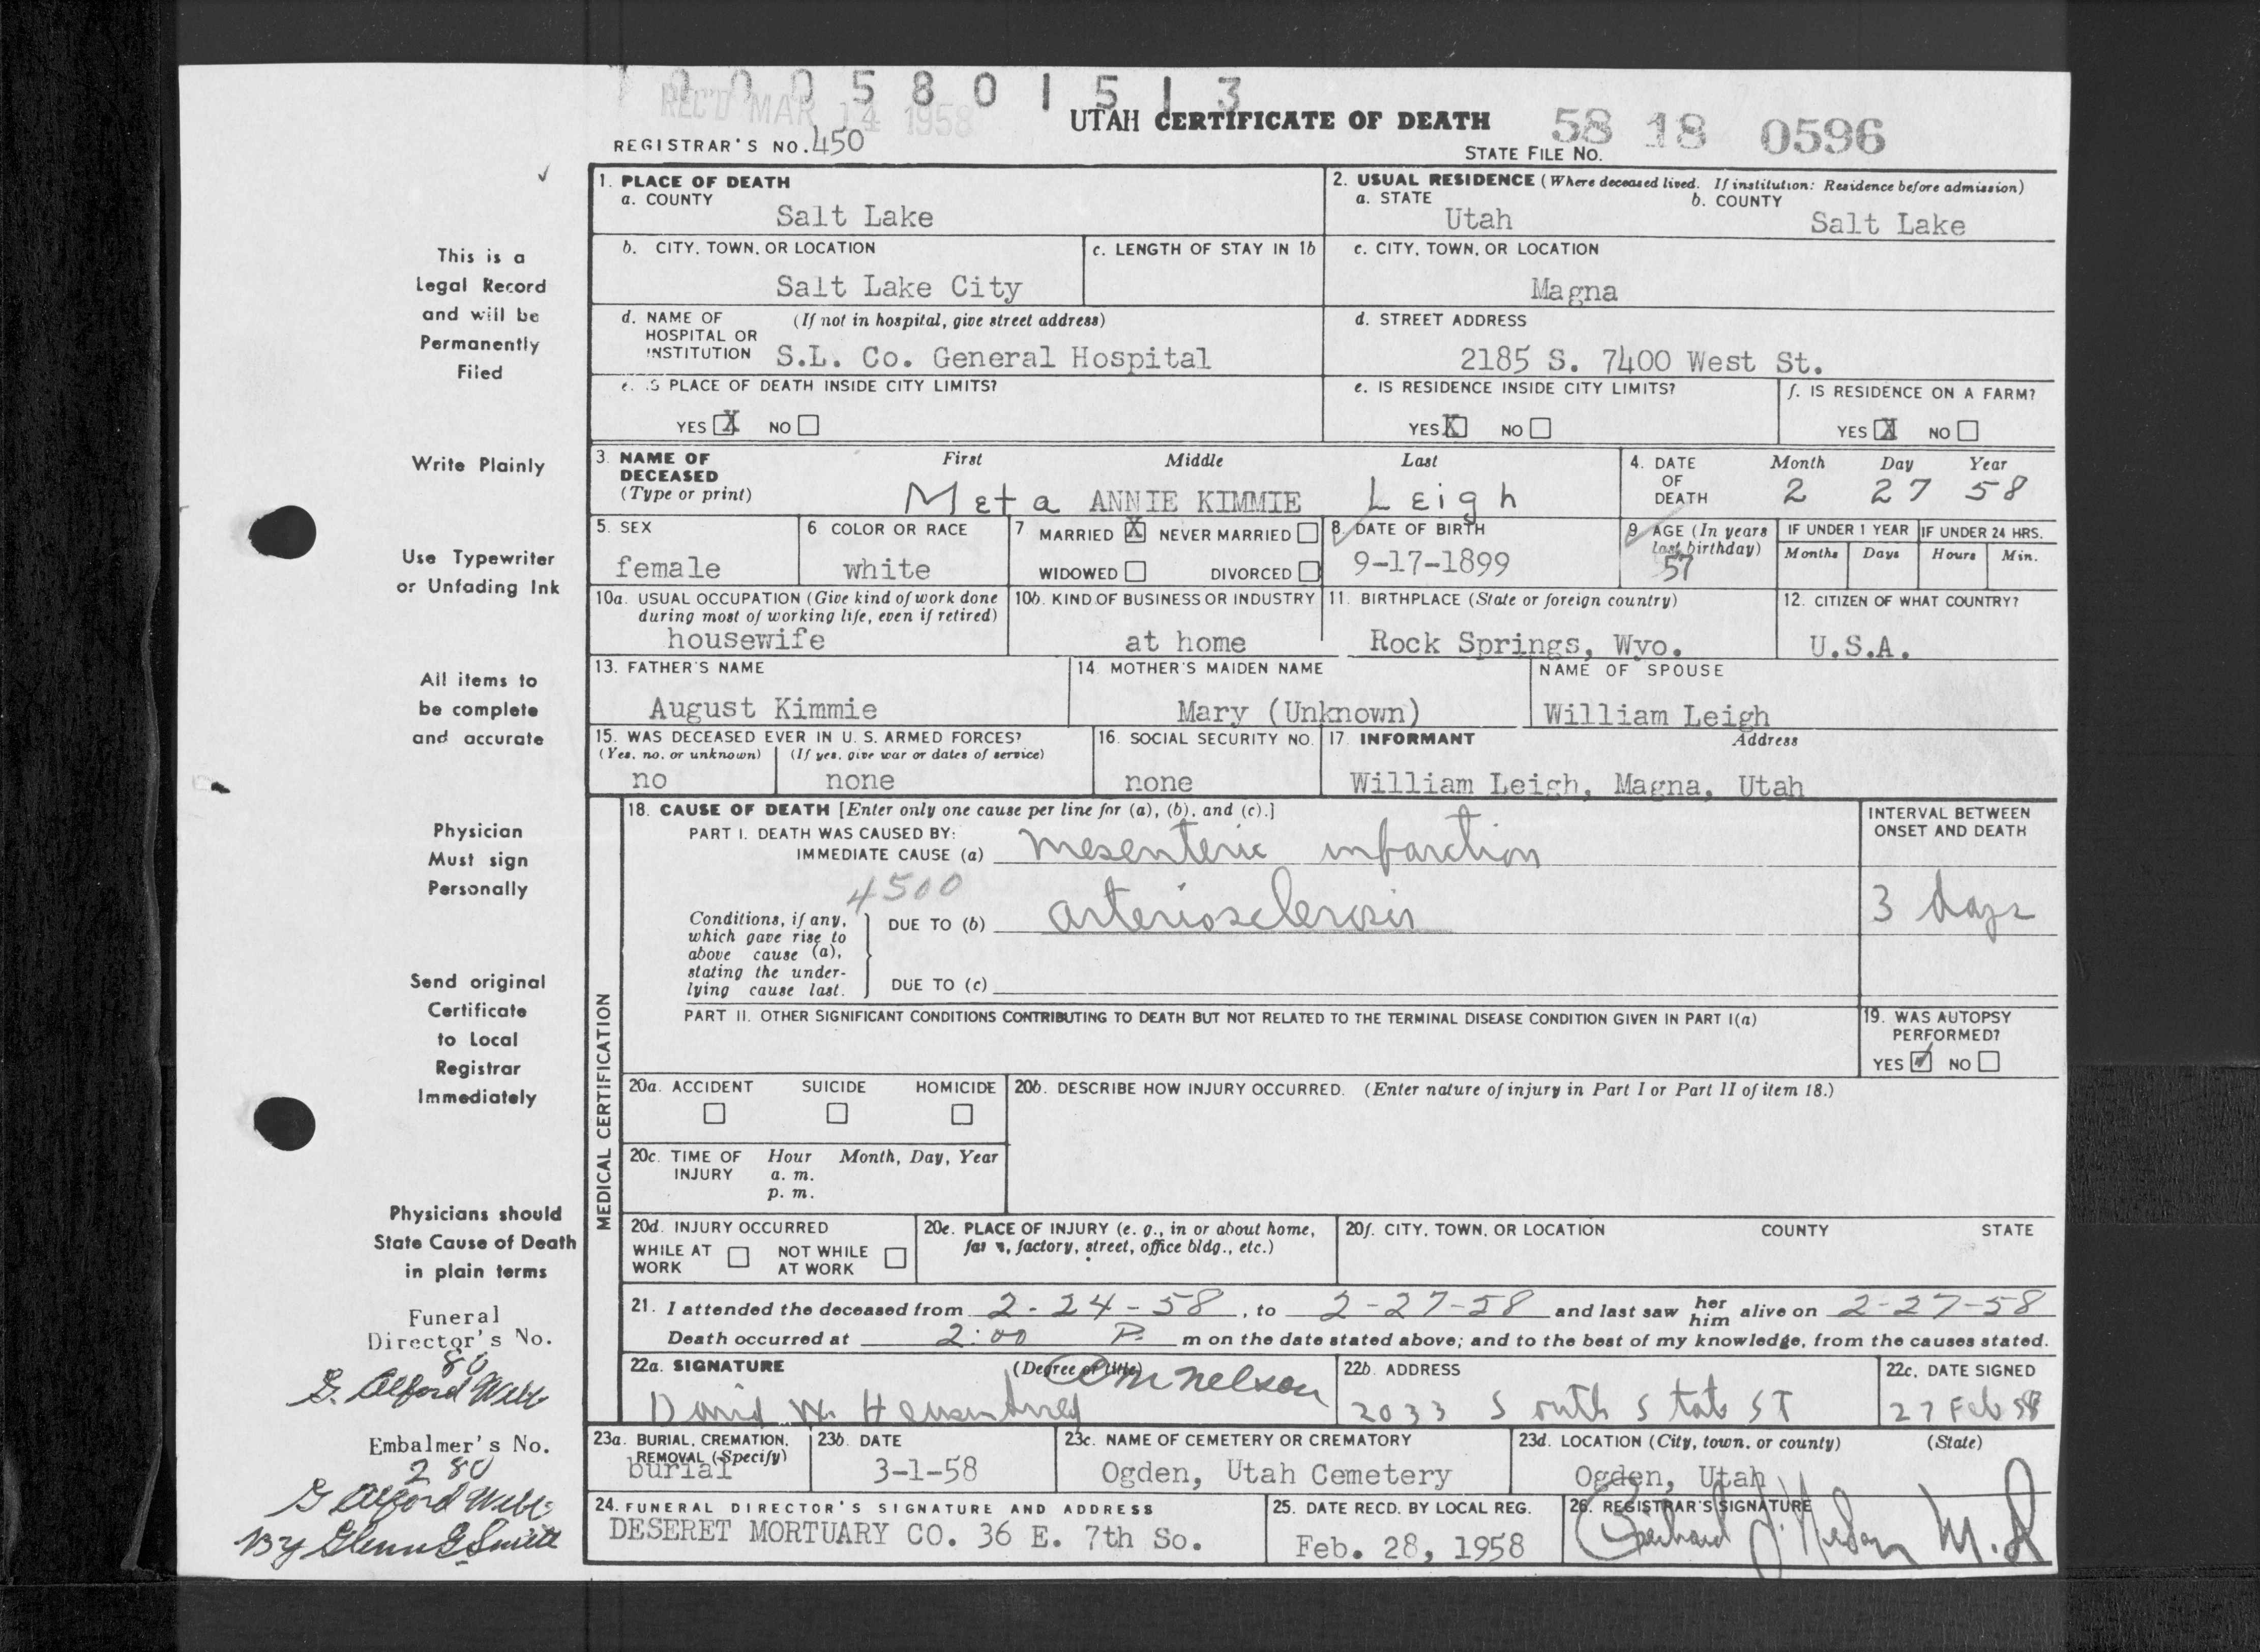 1 0 0 0 5 8 0 1 5 1 3
REC'D MAR 14 1958
UTAH CERTIFICATE OF DEATH
58 18 0596
REGISTRAR'S NO. 450
STATE FILE NO.
1. PLACE OF DEATH
a. COUNTY
Salt Lake
2. USUAL RESIDENCE (Where deceased lived. If institution: Residence before admission)
a. STATE b. COUNTY
Utah Salt Lake
b. CITY, TOWN, OR LOCATION
Salt Lake City
c. LENGTH OF STAY IN 1b
c. CITY, TOWN, OR LOCATION
Magna
d. NAME OF (If not in hospital, give street address)
HOSPITAL OR
INSTITUTION S.L. Co. General Hospital
d. STREET ADDRESS
2185 S. 7400 West St.
e. IS PLACE OF DEATH INSIDE CITY LIMITS?
YES X NO
e. IS RESIDENCE INSIDE CITY LIMITS?
YES X NO
f. IS RESIDENCE ON A FARM?
YES X NO
3. NAME OF First Middle Last
DECEASED
(Type or print) Meta ANNIE KIMMIE Leigh
4. DATE Month Day Year
OF
DEATH 2 27 58
5. SEX
female
6 COLOR OR RACE
white
7 MARRIED X NEVER MARRIED
WIDOWED DIVORCED
8. DATE OF BIRTH
9-17-1899
9 AGE (In years
last birthday)
57
IF UNDER 1 YEAR IF UNDER 24 HRS.
Months Days Hours Min.
10a. USUAL OCCUPATION (Give kind of work done
during most of working life, even if retired)
housewife
10b. KIND OF BUSINESS OR INDUSTRY
at home
11. BIRTHPLACE (State or foreign country)
Rock Springs, Wyo.
12. CITIZEN OF WHAT COUNTRY?
U.S.A.
13. FATHER'S NAME
August Kimmie
14. MOTHER'S MAIDEN NAME
Mary (Unknown)
NAME OF SPOUSE
William Leigh
15. WAS DECEASED EVER IN U. S. ARMED FORCES?
(Yes, no, or unknown) (If yes, give war or dates of service)
no none
16. SOCIAL SECURITY NO.
none
17. INFORMANT Address
William Leigh, Magna, Utah
MEDICAL CERTIFICATION
18. CAUSE OF DEATH [Enter only one cause per line for (a), (b), and (c).]
PART I. DEATH WAS CAUSED BY:
IMMEDIATE CAUSE (a) mesenteric infarction
4500
Conditions, if any,
which gave rise to
above cause (a),
stating the under-
lying cause last.
DUE TO (b) arteriosclerosis
DUE TO (c)
INTERVAL BETWEEN
ONSET AND DEATH
3 days
PART II. OTHER SIGNIFICANT CONDITIONS CONTRIBUTING TO DEATH BUT NOT RELATED TO THE TERMINAL DISEASE CONDITION GIVEN IN PART I(a)
19. WAS AUTOPSY
PERFORMED?
YES NO
20a. ACCIDENT SUICIDE HOMICIDE
20b. DESCRIBE HOW INJURY OCCURRED. (Enter nature of injury in Part I or Part II of item 18.)
20c. TIME OF Hour Month, Day, Year
INJURY a. m.
p. m.
20d. INJURY OCCURRED
WHILE AT NOT WHILE
WORK AT WORK
20e. PLACE OF INJURY (e. g., in or about home,
farm, factory, street, office bldg., etc.)
20f. CITY, TOWN, OR LOCATION COUNTY STATE
21. I attended the deceased from 2-24-58, to 2-27-58 and last saw her him alive on 2-27-58
Death occurred at 2:00 P. m on the date stated above; and to the best of my knowledge, from the causes stated.
22a. SIGNATURE (Degree or title)
David W. Nelson
22b. ADDRESS
2033 South State ST
22c. DATE SIGNED
27 Feb 58
23a. BURIAL, CREMATION,
REMOVAL (Specify)
burial
23b. DATE
3-1-58
23c. NAME OF CEMETERY OR CREMATORY
Ogden, Utah Cemetery
23d. LOCATION (City, town, or county) (State)
Ogden, Utah
24. FUNERAL DIRECTOR'S SIGNATURE AND ADDRESS
DESERET MORTUARY CO. 36 E. 7th So.
25. DATE RECD. BY LOCAL REG.
Feb. 28, 1958
26. REGISTRAR'S SIGNATURE
Nelson M.D
This is a
Legal Record
and will be
Permanently
Filed
Write Plainly
Use Typewriter
or Unfading Ink
All items to
be complete
and accurate
Physician
Must sign
Personally
Send original
Certificate
to Local
Registrar
Immediately
Physicians should
State Cause of Death
in plain terms
Funeral
Director's No.
80
G. Alford Webb
Embalmer's No.
280
G Alford Webb
By Glenn G Smith